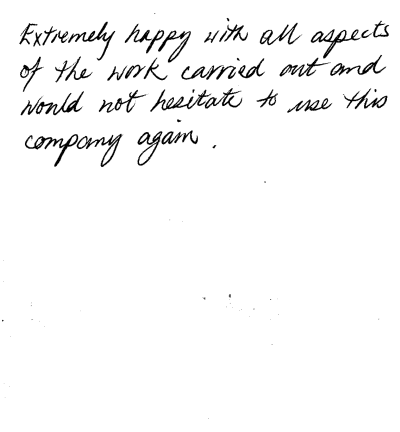 Extremely happy with all aspects
of the work carried out and
would not hesitate to use this
company again.